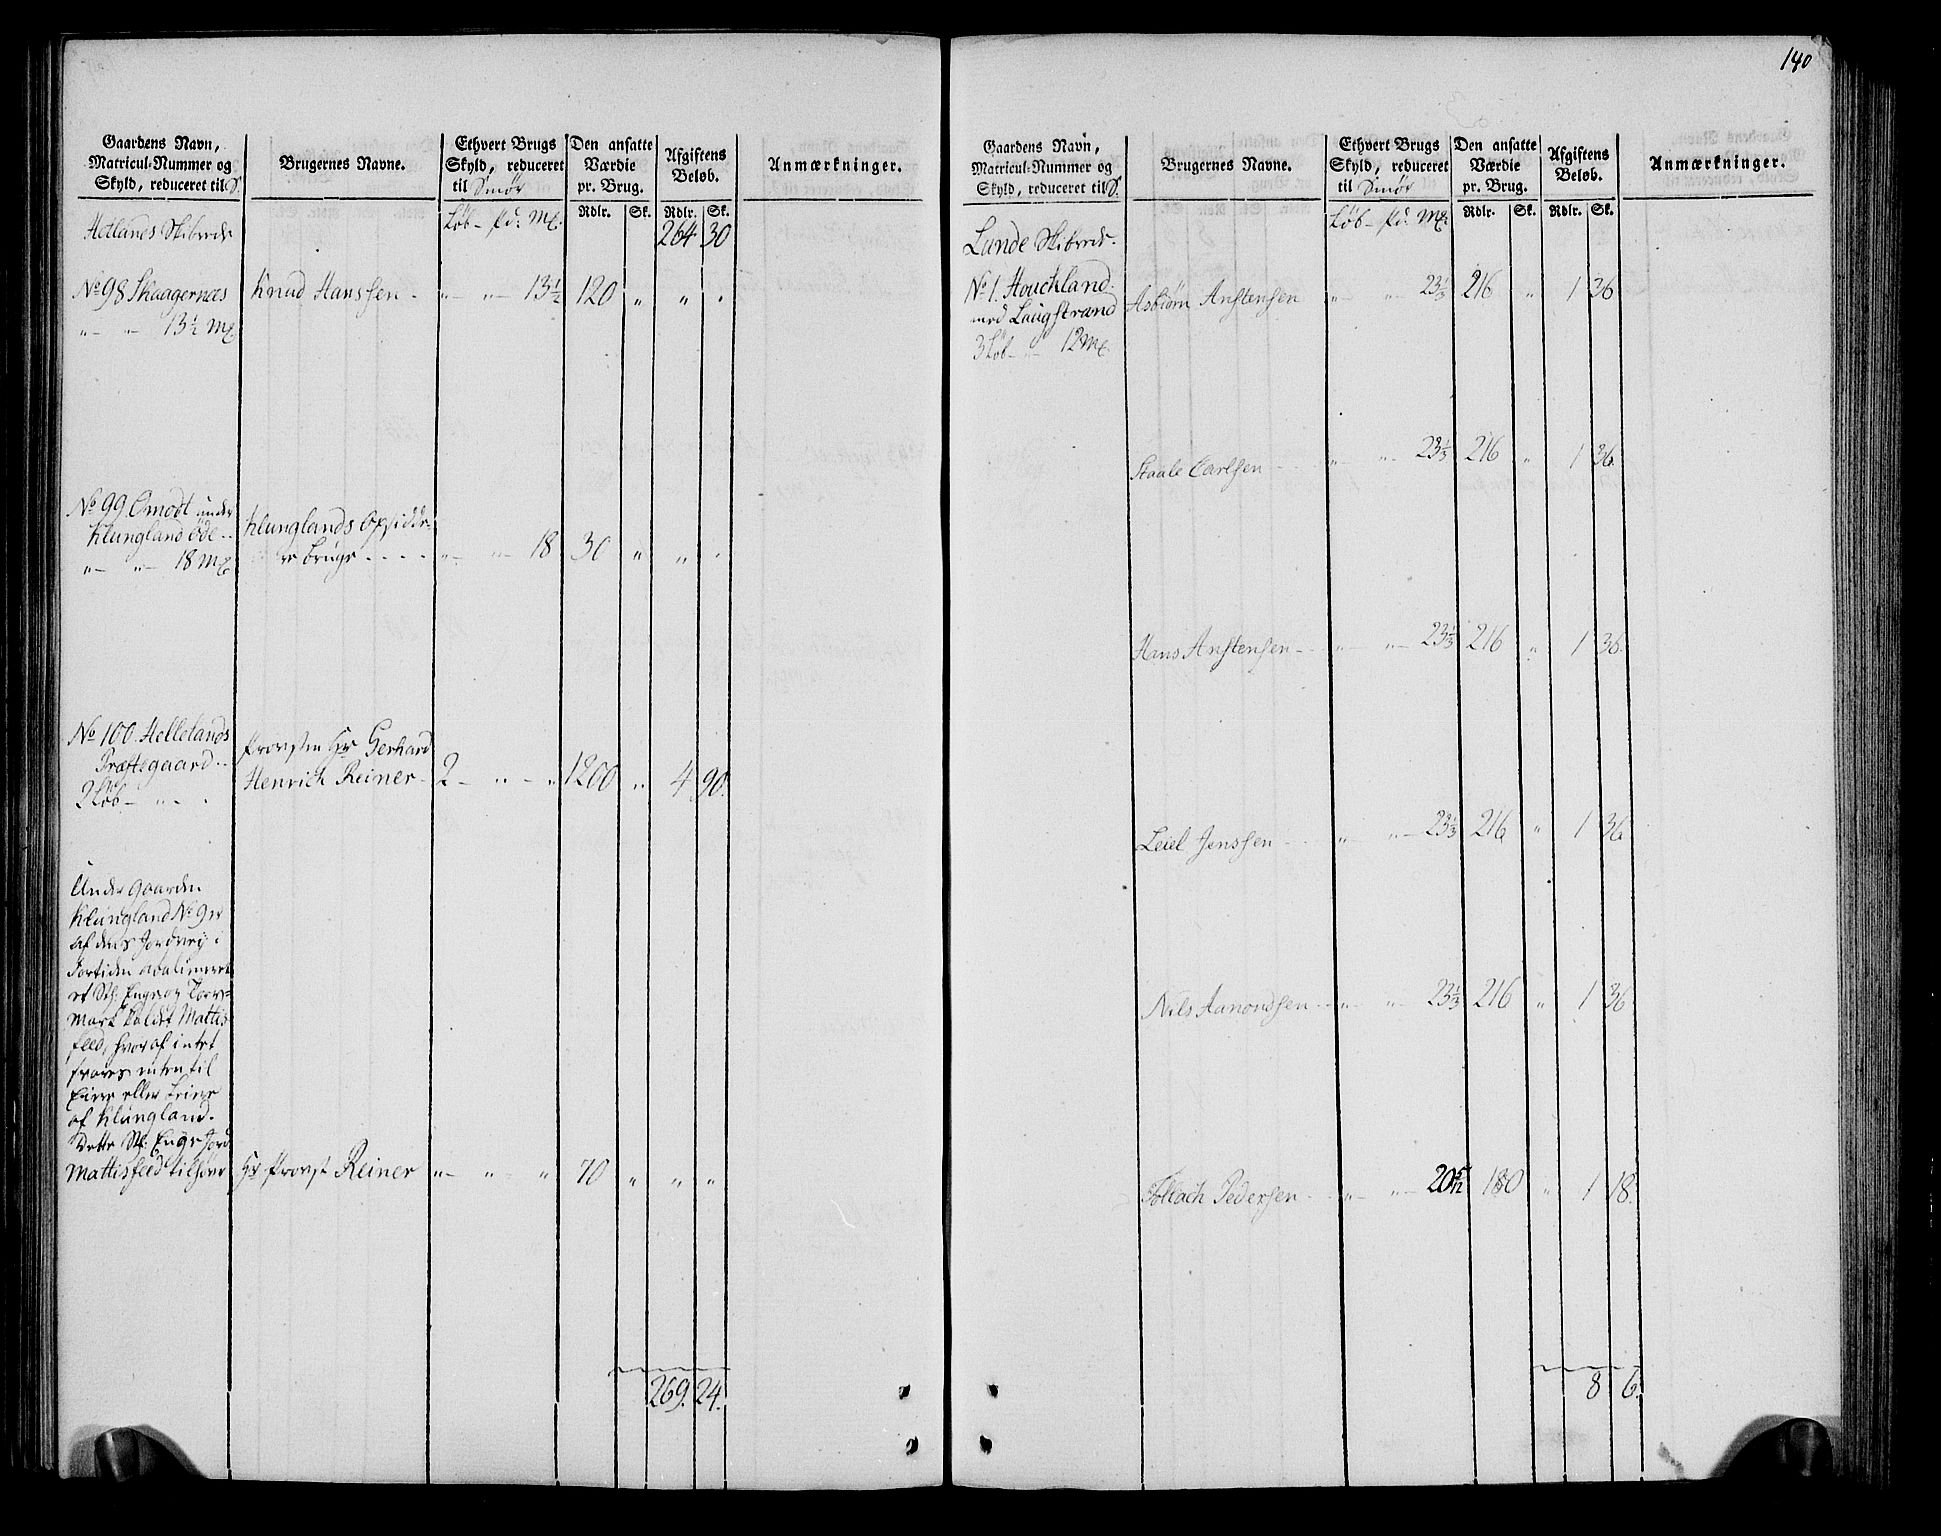 Gaardens Navn,
Matricul-Nummer og
Skyld, reduceret til S.
Brugernes Navne.
Ethvert Brugs
Skyld, reduceret
til Smør
Den ansatte
Værdie
pr. Brug.
Afgiftens
Beløb.
Anmærkninger.
Løb - pd: Mk:
Rdlr. Sk. Rdlr. Sk.
Hetlands Skibrede 264 30
No 98 Skaagernæs Knud Hanssen - " - " - 13½ 120 " " "
" - " - 13½ Mk
No 99 Omodt under Klunglands Opsidde-
Klungland øde - re bruge - - - - " - " - 18 30 " " "
" - " - 18 Mk
No 100. Hellelands Provsten Hr Gerhard
Præstegaard - Henrich Reiner - 2 - " - " 1200 " 4 90.
2 Løb - " -
Under gaarden
Klungland No 9 er
af dens Jordvej i
Fortiden
et Engeog
Mark kaldet Mattis
fled, hvoraf intet
svares enten til
Eiere eller
af Klungland.
Dette Stk. Enge Jord
Mattisfled tilhører Hr Provst Reiner " - " - " 70 " " "
269. 24.
140
Gaardens Navn,
Matricul-Nummer og
Skyld, reduceret til S.
Brugernes Navne.
Ethvert Brugs
Skyld, reduceret
til Smør
Den ansatte
Værdie
pr. Brug.
Afgiftens
Beløb.
Anmærkninger.
Løb - pd: Mk:
Rdlr. Sk. Rdlr. Sk.
Lunde Skibrede.
No 1. Houchland Asbiørn Anstensen " - " - 23⅓ 216 " 1 36
med Laugstrand
3 Løb - " - 12 Mk
Staale Carlsen - - " - " - 23⅓ 216 " 1 36.
Hans Anstensen - " - " - 23⅓ 216 " 1 36.
Leiel Jenssen - - " - " - 23⅓ 216 " 1 36
Nils Aamondsen - " - " - 23⅓ 216 " 1 36
Tollach Pedersen - " - " - 20 5/12 180 " 1 18.
8 6.